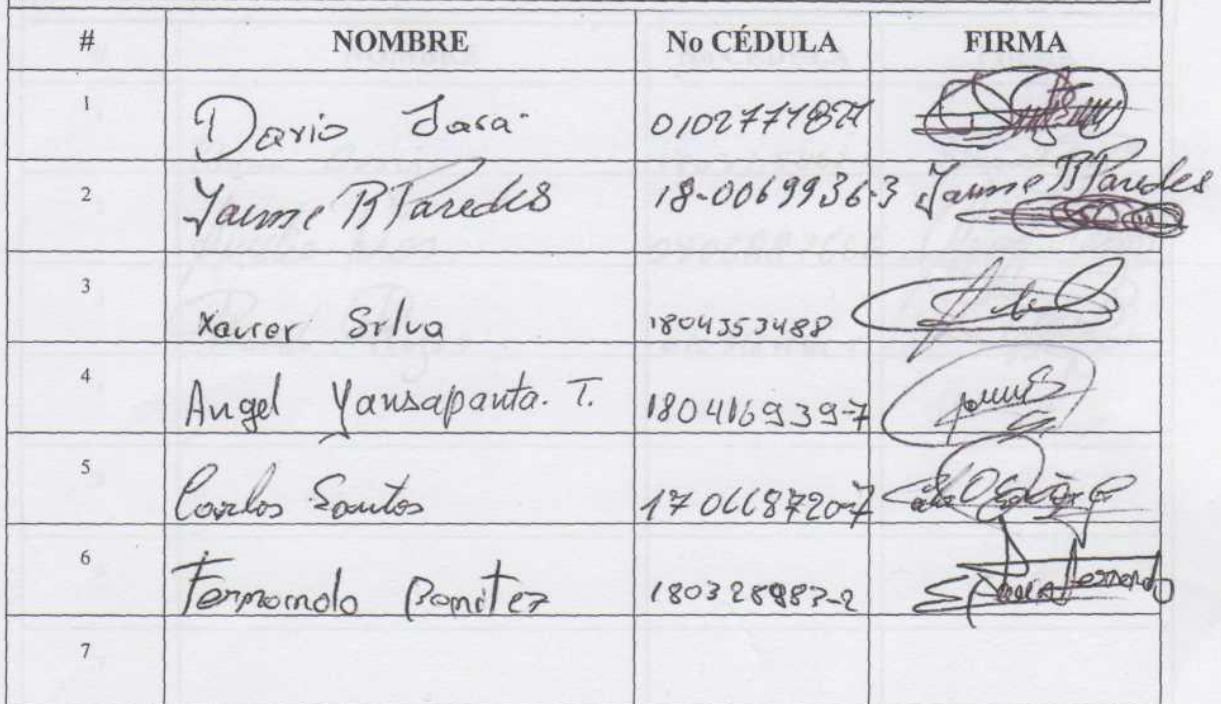 # NOMBRE No CÉDULA FIRMA
1 Dario Jara
2 Jaime R Paredes 18-0069936-3 Jaime R Paredes
3 Xavier Silva 1804353488
4 Angel Yansapanta. T. 180416939-7
5 Carlos Santos 170668720-7
6 Fernando Benitez 180328983-2
7